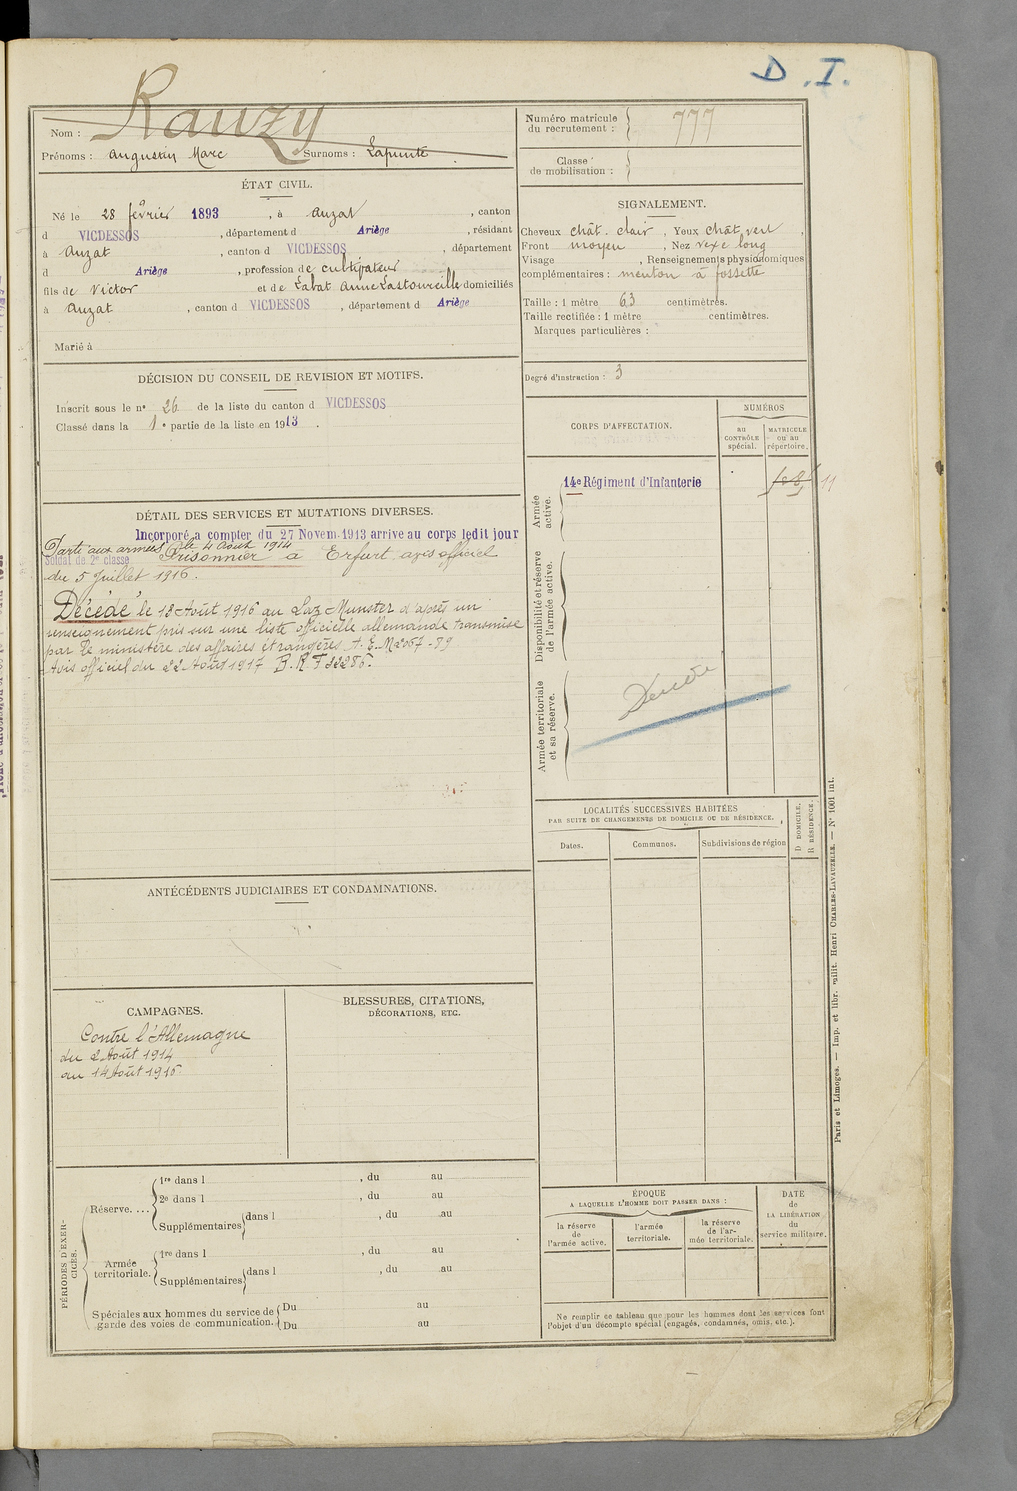 D. I.
Rauzy
Nom :
Prénoms : Augustin Marc Surnoms : Lapunte
Numéro matricule du recrutement : 777
Classe de mobilisation :
ÉTAT CIVIL.
Né le 28 février 1893, à Auzat, canton
d VICDESSOS, département d Ariège, résidant
à Auzat, canton d VICDESSOS, département
d Ariège, profession de cultivateur
fils de Victor et de Labat Anne Lastoureille domiciliés
à Auzat, canton d VICDESSOS, département d Ariège
Marié à
SIGNALEMENT.
Cheveux chât. clair, Yeux chât. vert,
Front moyen, Nez vexe long
Visage , Renseignements physionomiques
complémentaires : menton à fossette
Taille : 1 mètre 63 centimètres.
Taille rectifiée : 1 mètre centimètres.
Marques particulières :
Degré d'instruction : 3
DÉCISION DU CONSEIL DE REVISION ET MOTIFS.
Inscrit sous le n° 26 de la liste du canton d VICDESSOS
Classé dans la 1e partie de la liste en 1913.
DÉTAIL DES SERVICES ET MUTATIONS DIVERSES.
Incorporé a compter du 27 Novem. 1913 arrive au corps ledit jour
Parti aux armées le 4 Août 1914
Soldat de 2e classe Prisonnier à Erfurt avis officiel
du 5 Juillet 1916.
Décédé le 18 Août 1916 au Laz Munster d'après un
renseignement pris sur une liste officielle allemande transmise
par le ministère des affaires étrangères A. E. M2067-89
Avis officiel du 22 Août 1917 B.R.F 22286.
CORPS D'AFFECTATION.
NUMÉROS
au CONTRÔLE spécial.
MATRICULE ou au répertoire.
Armée active.
14e Régiment d'Infanterie
11
Disponibilité et réserve de l'armée active.
Armée territoriale et sa réserve.
LOCALITÉS SUCCESSIVES HABITÉES
PAR SUITE DE CHANGEMENTS DE DOMICILE OU DE RÉSIDENCE.
D DOMICILE.
R RÉSIDENCE.
Dates.
Communes.
Subdivisions de région
ANTÉCÉDENTS JUDICIAIRES ET CONDAMNATIONS.
CAMPAGNES.
Contre l'Allemagne
du 2 Août 1914
au 14 Août 1916
BLESSURES, CITATIONS,
DÉCORATIONS, ETC.
PÉRIODES D'EXERCICES.
Réserve....
1re dans l , du au
2e dans l , du au
Supplémentaires dans l , du au
Armée territoriale.
1re dans l , du au
Supplémentaires dans l , du au
Spéciales aux hommes du service de garde des voies de communication.
Du au
Du au
ÉPOQUE
A LAQUELLE L'HOMME DOIT PASSER DANS :
la réserve de l'armée active.
l'armée territoriale.
la réserve de l'armée territoriale.
DATE de LA LIBÉRATION du service militaire.
Ne remplir ce tableau que pour les hommes dont les services font
l'objet d'un décompte spécial (engagés, condamnés, omis, etc.).
Paris et Limoges. — Imp. et libr. milit. Henri CHARLES-LAVAUZELLE. — N° 1001 int.